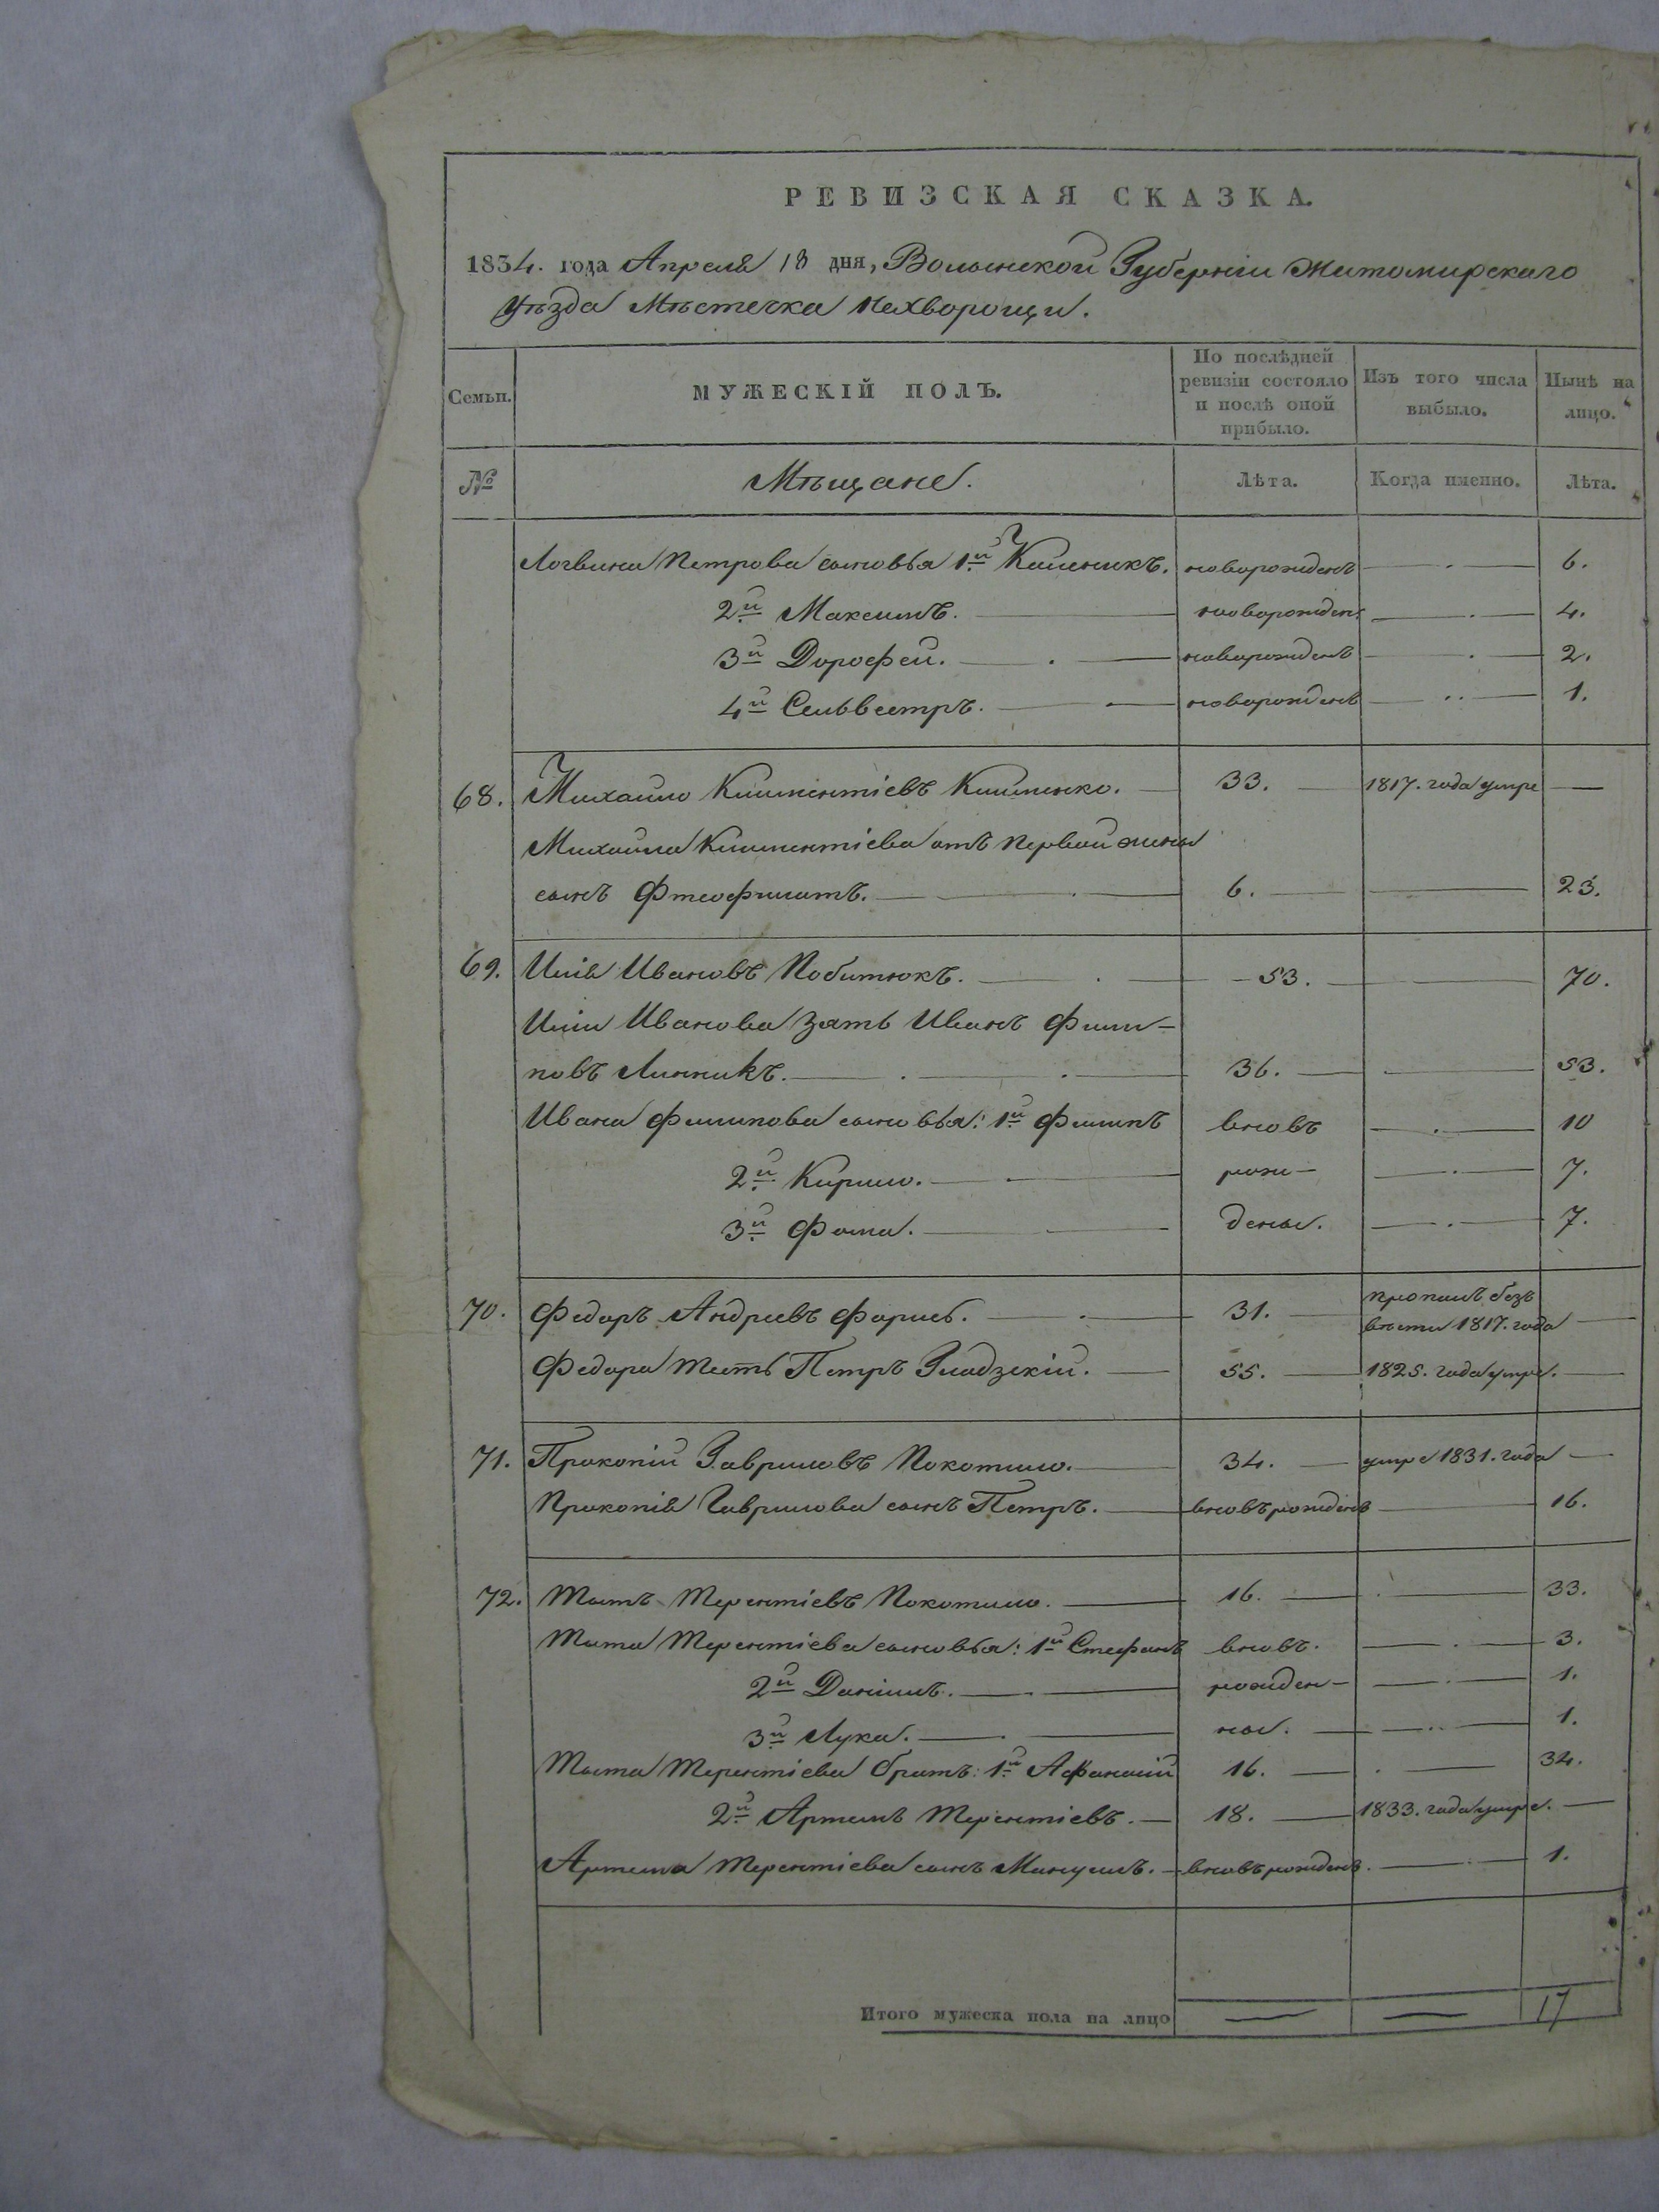 РЕВИЗСКАЯ СКАЗКА.
1834. года Апреля 18 дня, Волынской Губерніи Житомирскаго
Уѣзда Мѣстечка Нехворощи.
Семьи. МУЖЕСКІЙ ПОЛЪ. По послѣдней ревизіи состояло и послѣ оной прибыло. Изъ того числа выбыло. Нынѣ на лицо.
№ Мѣщане. Лѣта. Когда именно. Лѣта.
Логвина Петрова сыновья 1й Калѣникъ. новорожденъ 6.
2й Максимъ. новорожден. 4.
3й Дорофей. новорожденъ 2.
4й Сельвестръ. новорожденъ 1.
68. Михайло Климентіевъ Клименко. 33. 1817. года умре
Михайла Климентіева отъ первой жены
сынъ Фтеофилатъ. 6. 23.
69. Илія Ивановъ Побитюкъ. 53. 70.
Иліи Иванова зять Иванъ Фили-
повъ Линникъ. 36. 53.
Ивана Филипова сыновья: 1й Филипъ вновъ 10
2й Кирило. рож- 7.
3й Фома. дены. 7.
70. Федоръ Андреевъ Фарисъ. 31. пропалъ безъ вѣсти 1817. года
Федора тесть Петръ Гладзскій. 55. 1825. года умре.
71. Прокопій Гавриловъ Покотило. 34. умре 1831. года
Прокопія Гаврилова сынъ Петръ. вновърожденъ 16.
72. Титъ Терентіевъ Покотило. 16. 33.
Тита Терентіева сыновья: 1й Стефанъ вновъ. 3.
2й Данилъ. рожден- 1.
3й Лука. ны. 1.
Тита Терентіева братъ: 1й Афанасій 16. 34.
2й Артемъ Терентіевъ. 18. 1833. года умре.
Артема Терентіева сынъ Мануилъ. вновърожденъ. 1.
Итого мужеска пола на лицо 17